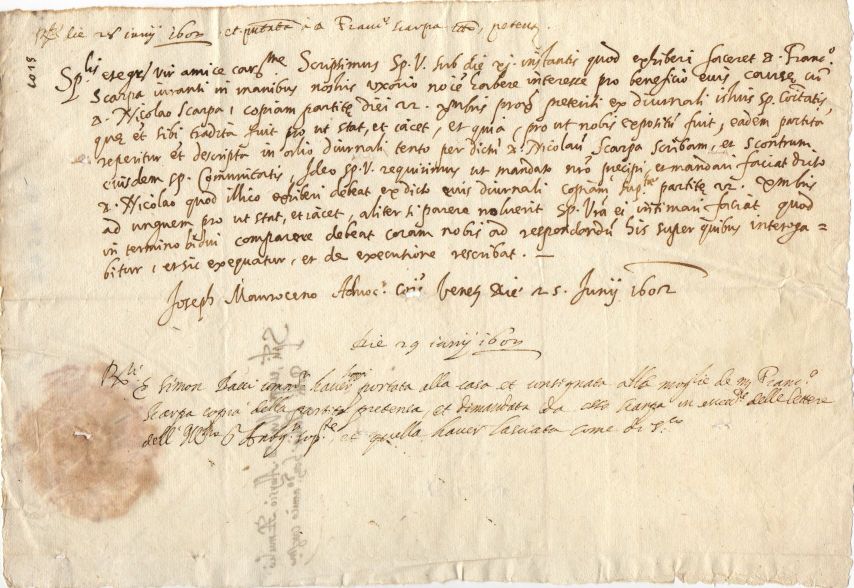 die 28 iunij 1602 et
Sp.lis et egr. vir amice car.me Scriptimus Sp. V. sub die xj. instantis quod exhiberi faceret D. Franc.o
Scarpa iuranti in manibus nostris uxorio noie habere interesse pro beneficio eius causę cū
D. Nicolao Scarpa, copiam partitę diei 22. Xmbris prox. preteriti ex diurnali istius Sp. Cōitatis
quę et sibi tradita fuit pro ut stat, et iacet, et quia, pro ut nobis expositū fuit, eadem partita
reperitur et descripta in olio diurnali tento per dictū D. Nicolaū Scarpa scribam, et scontrum
eiusdem Sp. Commūitatis, Ideo Sp. V. requirimus ut mandato nrō precipi, et mandari faciat dicto
D. Nicolao quod illico exhiberi debeat ex dicto eius diurnali copiam sup.te partitę 22. Xmbris
ad unguem pro ut stat, et iacet, aliter si parere noluerit Sp. Vra ei intimari faciat quod
in termino bidui comparere debeat coram nobis ad respondendū his super quibus interoga=
bitur, et sic exequatur, et de executione rescribat. —
Joseph Mauroceno Advoc. Cōis Venet. Die 25. Junij 1602
die 29 iunij 1602
Simon haver portata alla casa et consignata alla moglie de m. Franc.o
Scarpa copia della partita pretensa, et domandata da esso Scarpa in delle lettere
dell' et quella haver lasciata come di s.a
1018